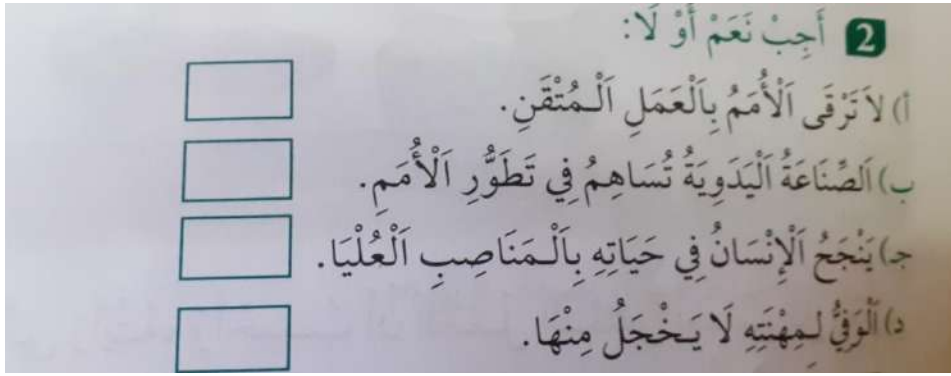 2 أَجِبْ نَعَمْ أَوْ لَا:
أ) لاَ تَرْقَى اَلْأُمَمُ بِاَلْعَمَلِ اَلْـمُتْقَنِ.
ب) اَلصِّنَاعَةُ اَلْيَدَوِيَةُ تُسَاهِمُ فِي تَطَوُّرِ اَلْأُمَمِ.
جـ) يَنْجَحُ اَلْإِنْسَانُ فِي حَيَاتِهِ بِاَلْـمَنَاصِبِ اَلْعُلْيَا.
د) اَلْوَفِيُّ لِـمِهْنَتِهِ لَا يَـخْجَلُ مِنْهَا.